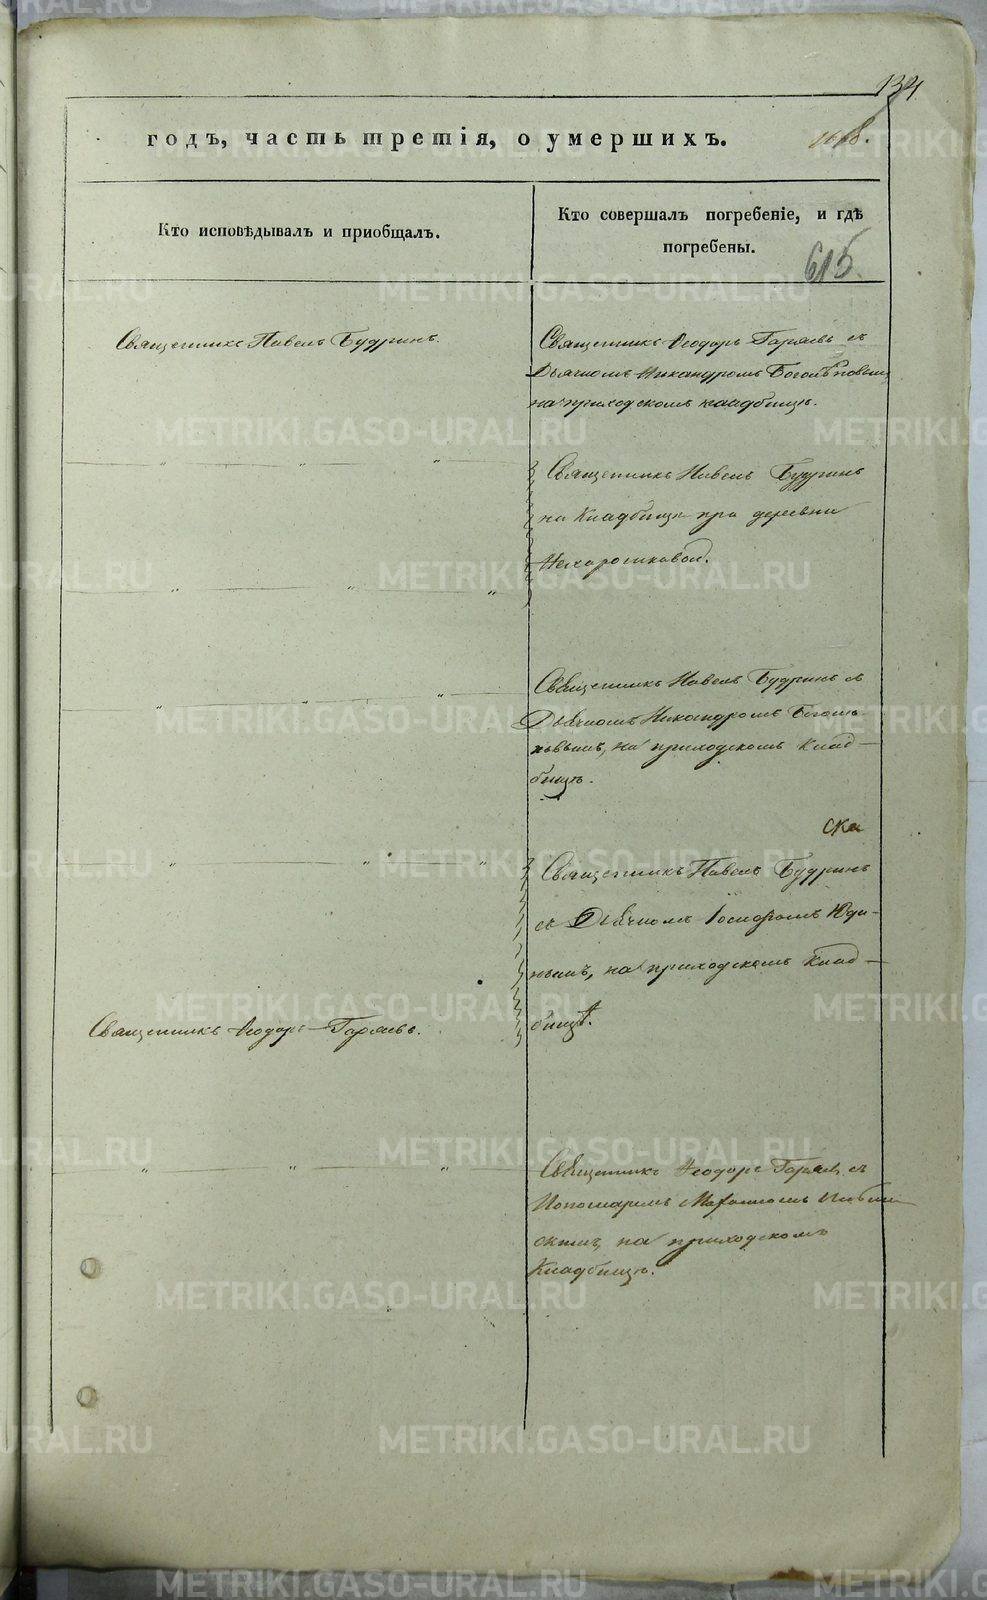 134
годъ, часть третія, о умершихъ.
Кто исповѣдывалъ и приобщалъ.
Кто совершалъ погребеніе, и гдѣ
погребены.
615.
Священникъ Павелъ Будринъ.
Священникъ Ѳеодоръ Гаряевъ съ
Дьячкомъ Никандромъ
на приходскомъ кладбищѣ.
Священникъ Павелъ Будринъ
на Кладбищѣ при деревни
Нехорошковой.
Священникъ Павелъ Будринъ съ
Дьячкомъ Никандромъ
на приходскомъ Клад-
бищѣ.
ска
Священникъ Павелъ Будринъ
съ Дьячкомъ Юди-
нымъ, на приходскомъ Клад-
бищѣ.
Священникъ Ѳеодоръ Гаряевъ.
Священникъ Ѳеодоръ Гаряевъ съ
Пономаремъ
на приходскомъ
Кладбищѣ.
METRIKI.GASO-URAL.RU